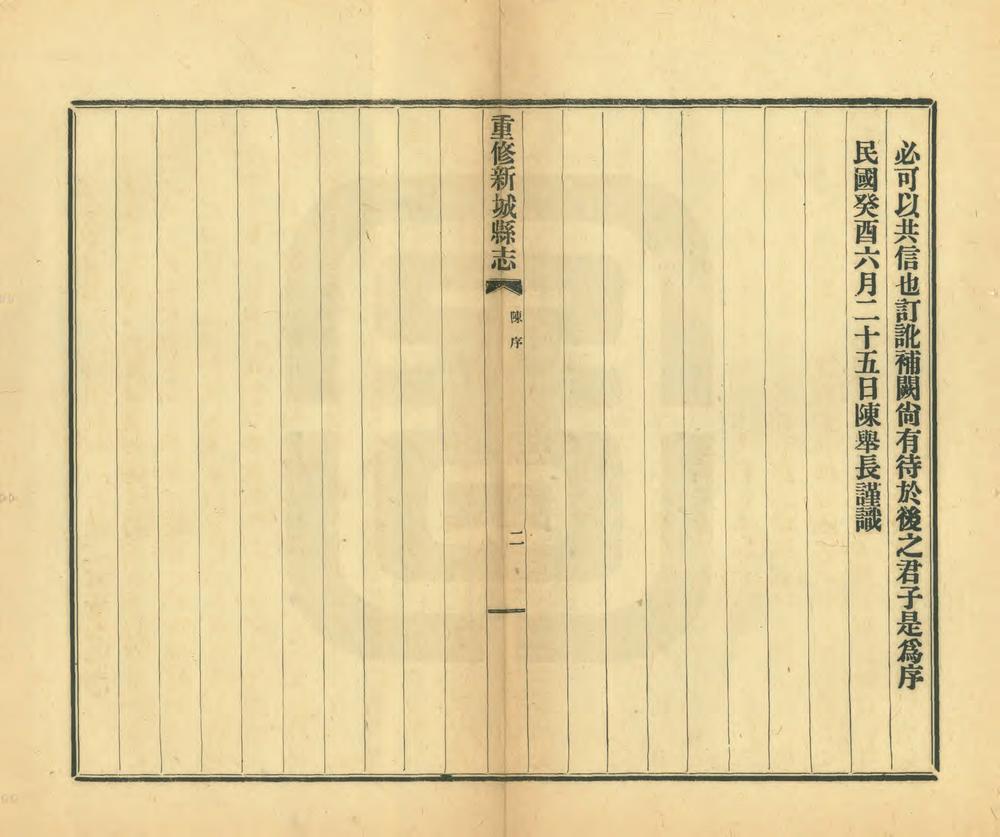 必可以共信也訂訛補闕尙有待於後之君子是爲序
民國癸酉六月二十五日陳舉長謹識
重修新城縣志
陳序
二